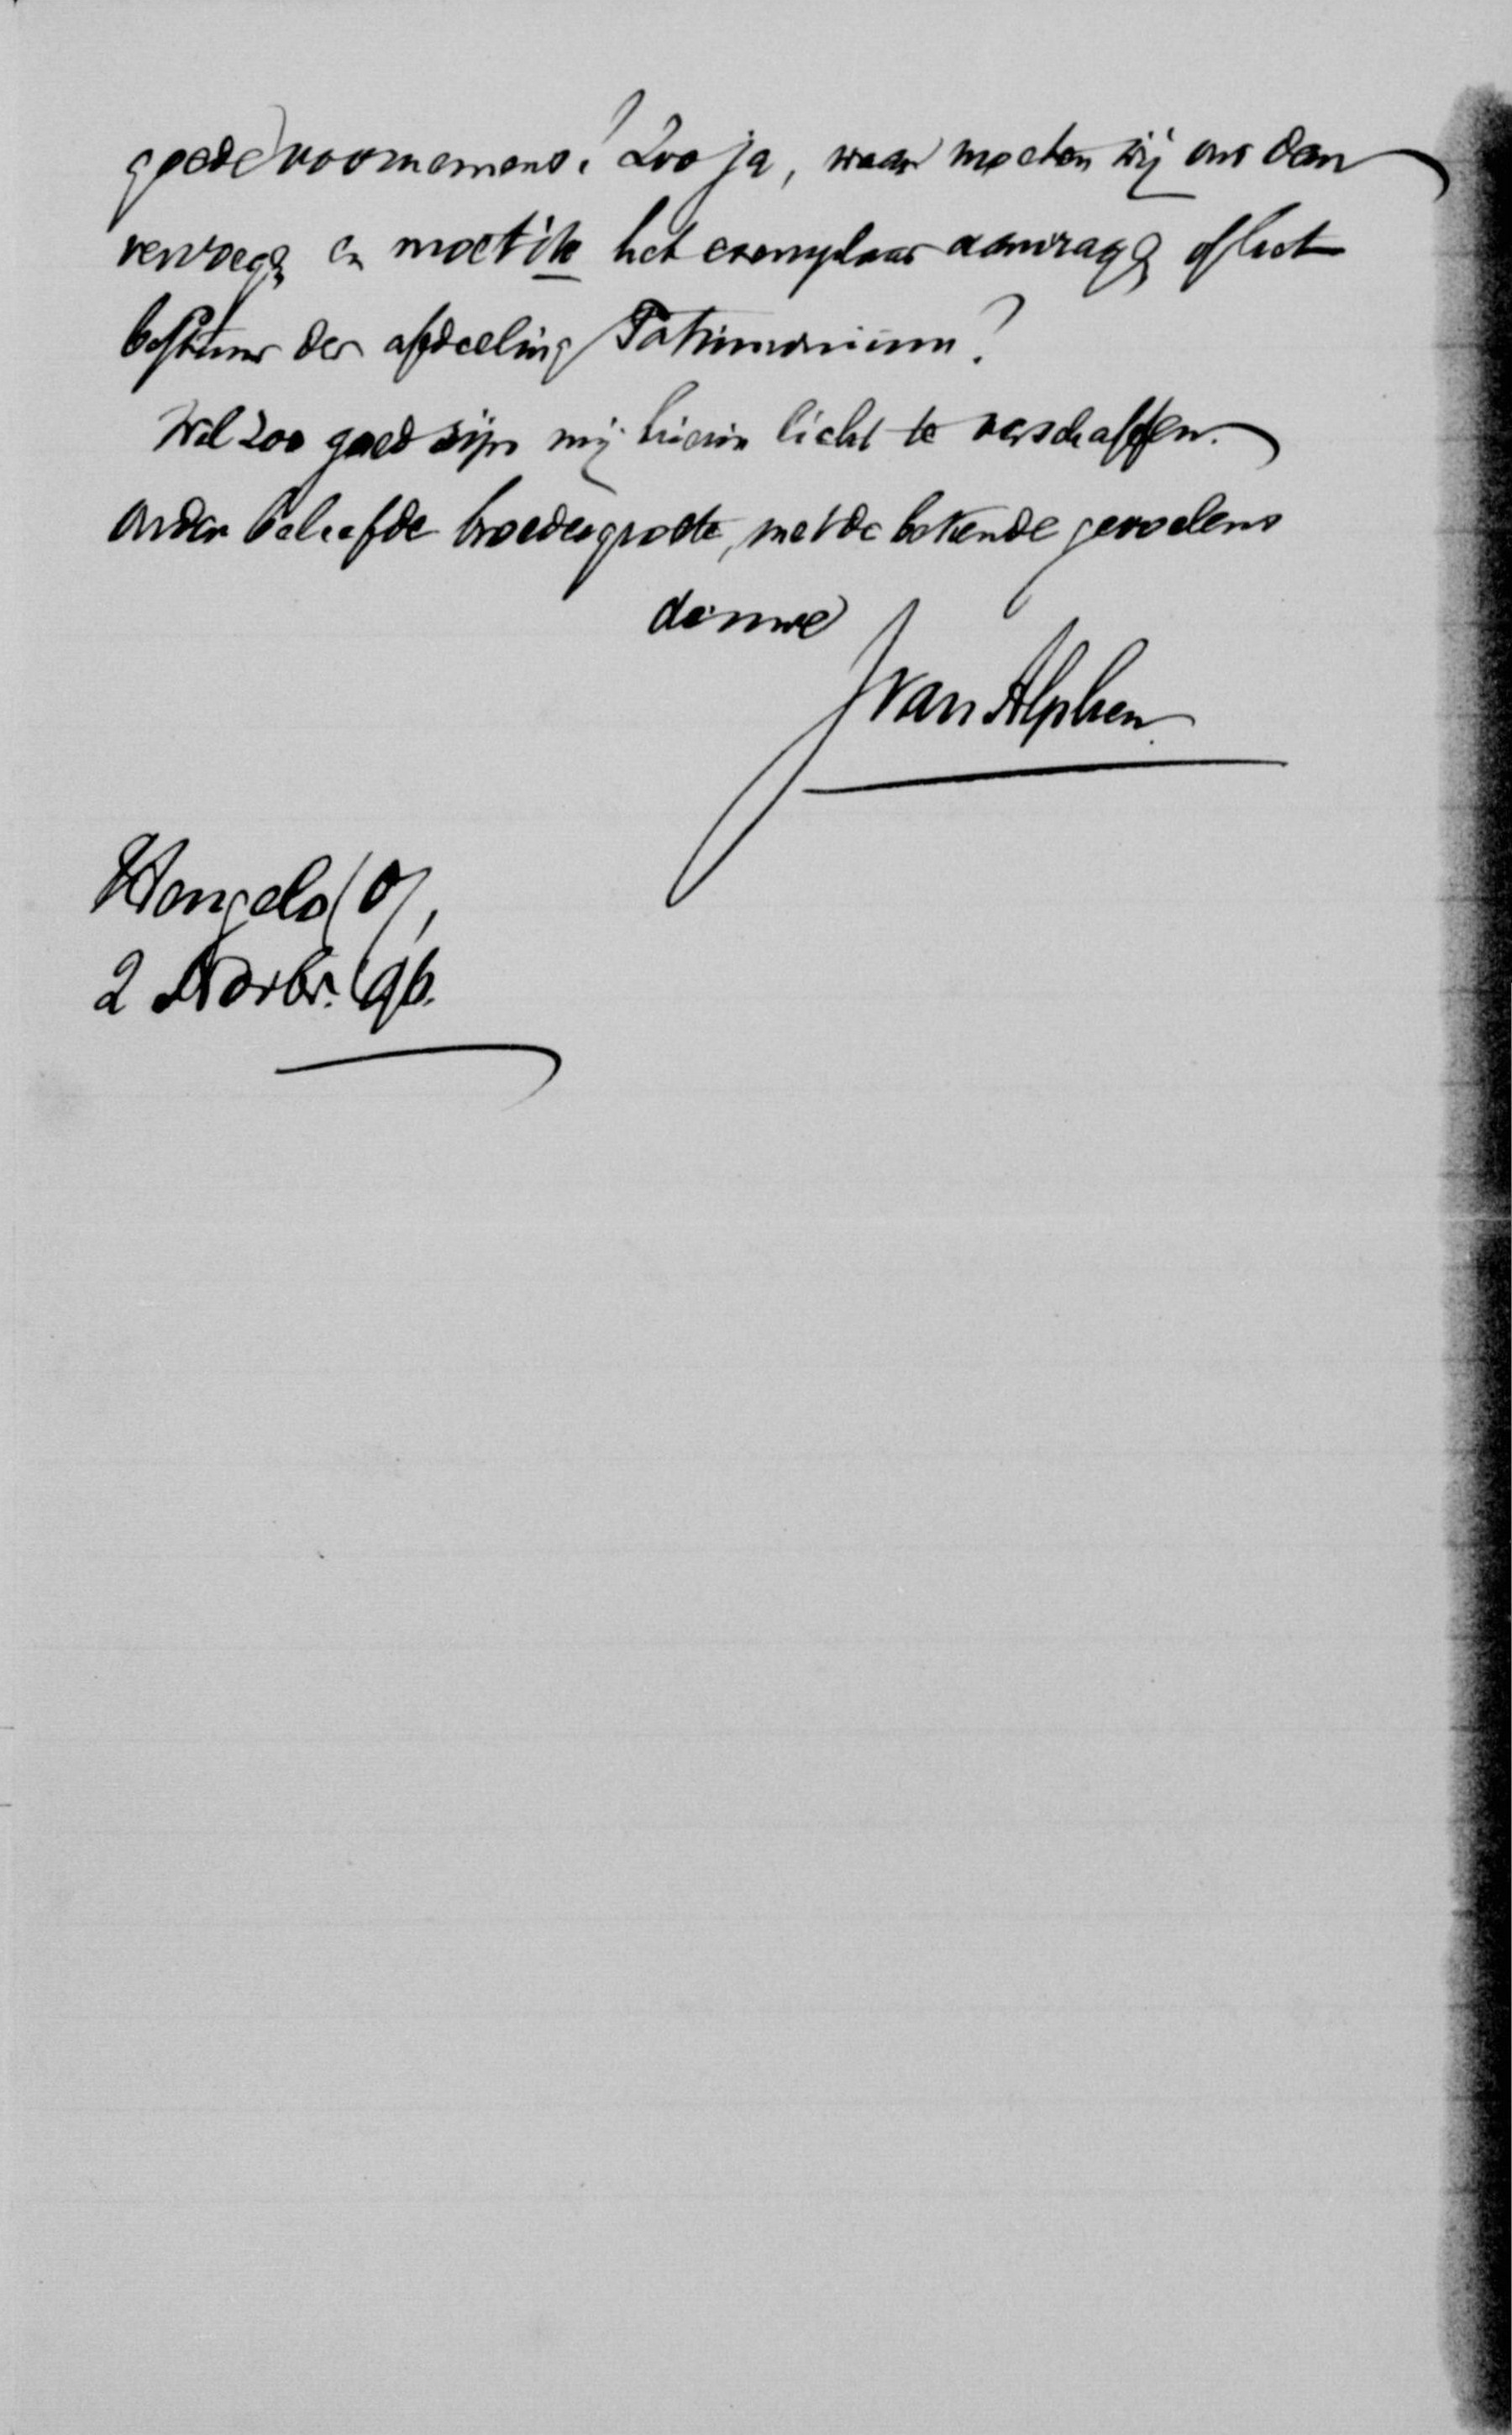 goede voornemens? Zoo ja, waar moeten wij ons dan
vervoegen en moet ik het exemplaar aanvragen of het
bestuur der afdeeling Patrimonium?
Wil zoo goed zijn mij hierin licht te verschaffen.
Onder beleefde broedergroete, met de bekende gevoelens
dwe
J van Alphen
Hengelo (O),
2 Novbr. '96.